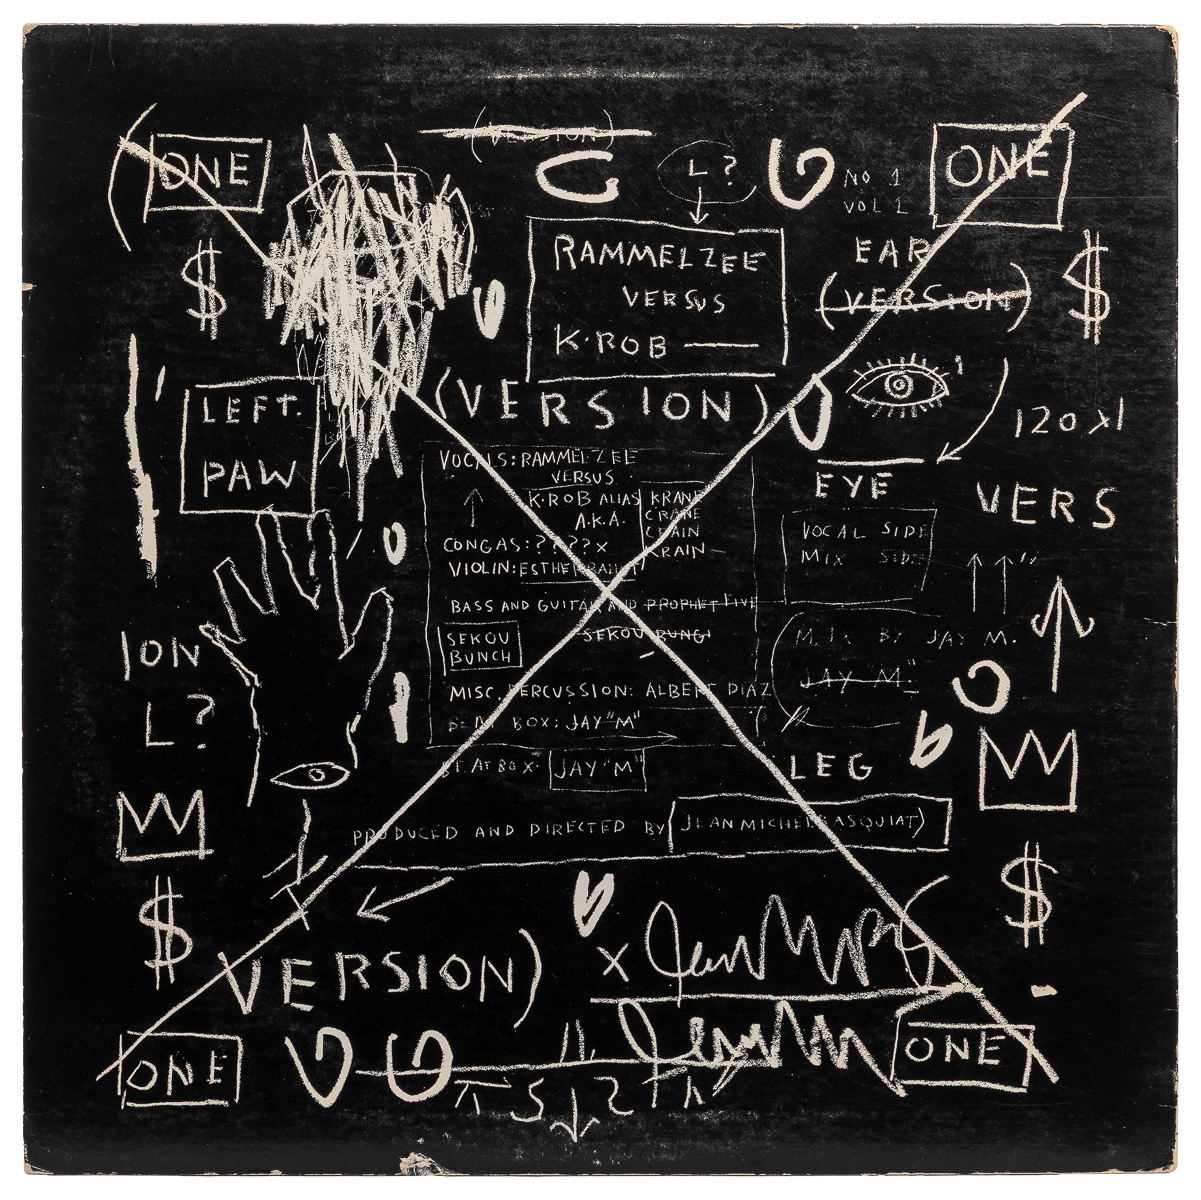 (VERSION)
ONE
ONE
L ?
NO 1
VOL 1
RAMMELZEE
VERSUS
K·ROB
EAR
(VERSION)
$
$
(VERSION)
LEFT.
PAW
120 X1
VERS
EYE
VOCALS: RAMMELZEE
VERSUS
K·ROB ALIAS KRANE
A.K.A. CRANE
CRAIN
KRAIN
CONGAS: ????X
VIOLIN: ESTHER BALINT
BASS AND GUITAR AND PROPHET FIVE
SEKOU BUNGI
SEKOU
BUNCH
MISC. PERCUSSION: ALBERT DIAZ
BEAT BOX: JAY "M"
BEAT BOX· JAY "M"
VOCAL SIDE
MIX SIDE
MIX BY JAY M.
JAY "M."
ION
L?
LEG
PRODUCED AND DIRECTED BY (JEAN MICHEL BASQUIAT)
$
$
VERSION)
X
ONE
ONE